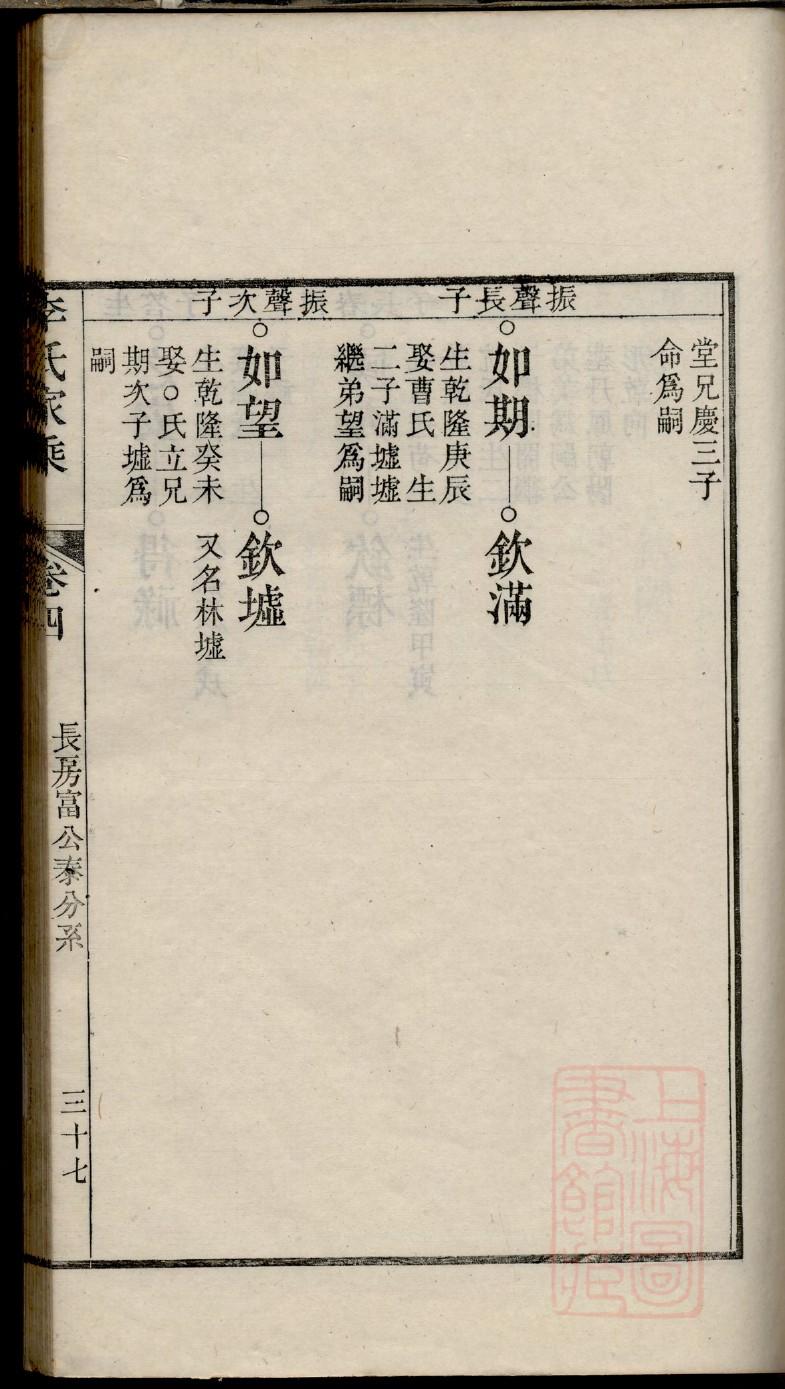 堂兄慶三子
命爲嗣
振聲長子
如期
欽滿
生乾隆庚辰
娶曹氏 生
二子滿墟墟
繼弟望爲嗣
振聲次子
如望
欽墟
生乾隆癸未
又名林墟
娶○氏立兄
期次子墟爲
嗣
李氏家乘
卷四
長房富公泰分系
三十七
上海圖
書館藏